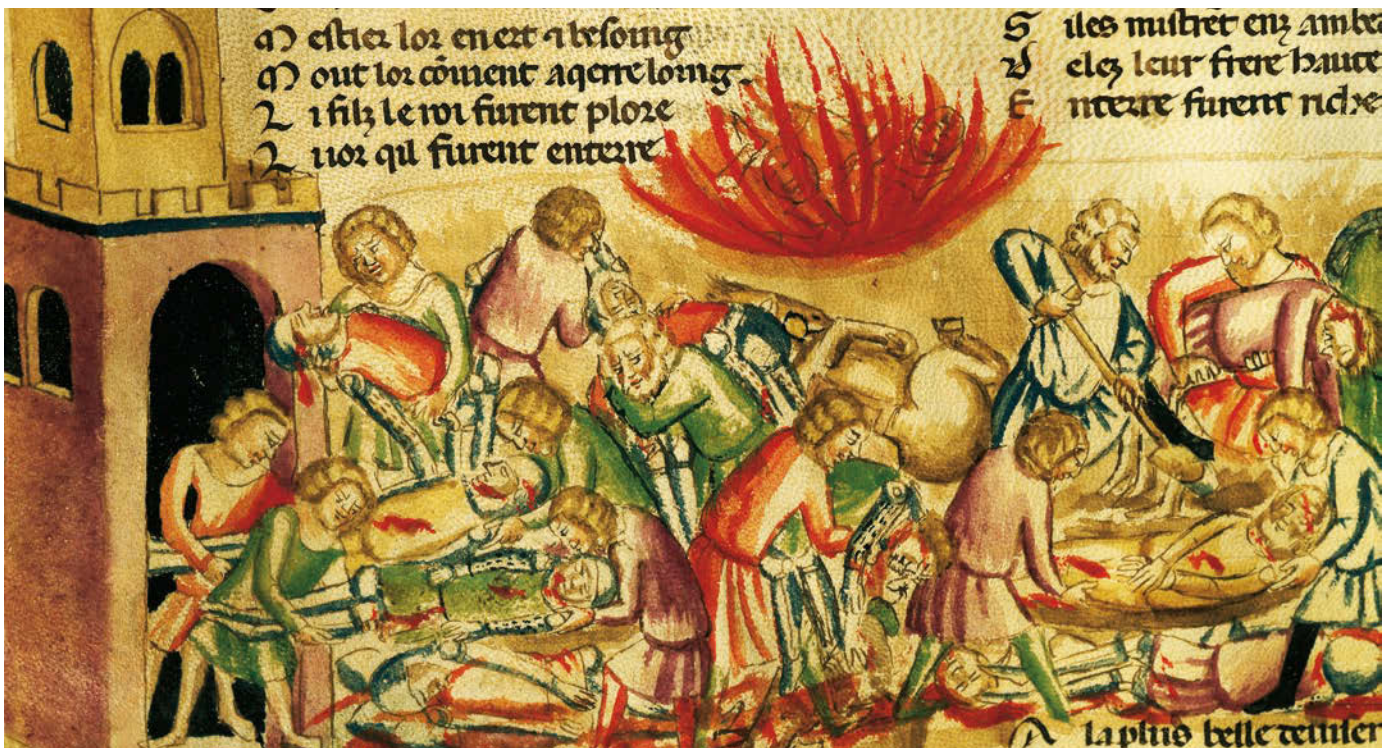 M estier lor en ert ⁊ besoing
M out lor cõuient aqerre loing.
L i filz le roi furent plore
L uor qil furent enterre
S iles mistret enz
V elez leur frere haute
E nterre furent riche
A la plus belle